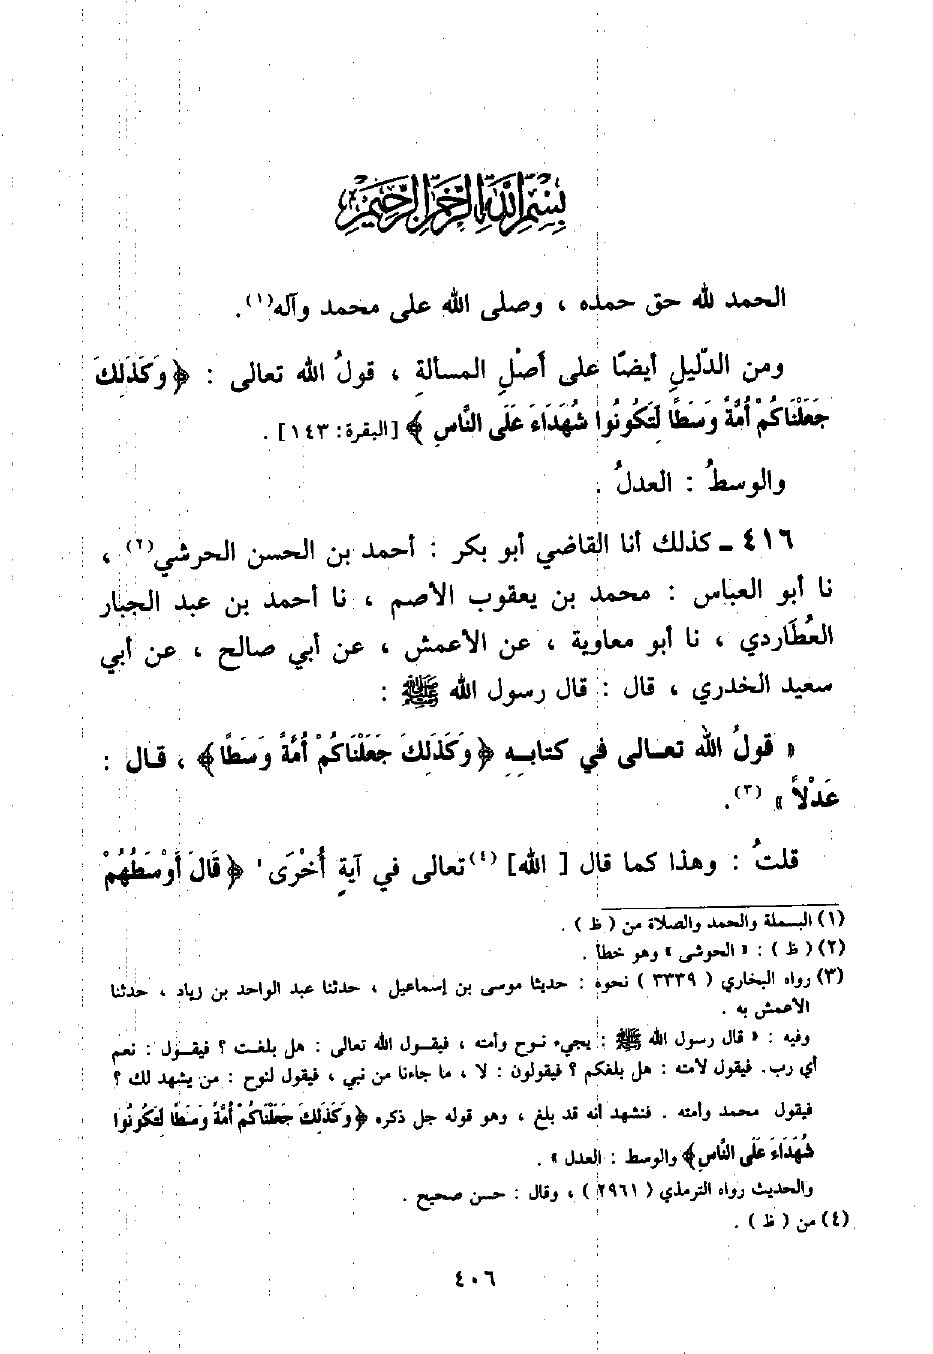 بِسْمِ اللَّهِ الرَّحْمَنِ الرَّحِيمِ
الحمد لله حق حمده ، وصلى الله على محمد وآله(١).
ومن الدّليلِ أيضًا على أصْلِ المسألةِ ، قولُ الله تعالى : ﴿ وَكَذَلِكَ
جَعَلْنَاكُمْ أُمَّةً وَسَطًا لِتَكُونُوا شُهَدَاءَ عَلَى النَّاسِ ﴾ [البقرة: ١٤٣] .
والوسطُ : العدلُ .
٤١٦ ـ كذلك أنا القاضي أبو بكر : أحمد بن الحسن الحرشي(٢) ،
نا أبو العباس : محمد بن يعقوب الأصم ، نا أحمد بن عبد الجبار
العُطَاردي ، نا أبو معاوية ، عن الأعمش ، عن أبي صالح ، عن أبي
سعيد الخدري ، قال : قال رسول الله ﷺ :
« قولُ الله تعالى في كتابِهِ ﴿ وَكَذَلِكَ جَعَلْنَاكُمْ أُمَّةً وَسَطًا﴾ ، قال :
عَدْلاً » (٣).
قلتُ : وهذا كما قال [ الله] (٤) تعالى في آيةٍ أُخْرَى ' ﴿ قَالَ أَوْسَطُهُمْ
(١) البسملة والحمد والصلاة من ( ظ ) .
(٢) ( ظ ) : « الحوشى » وهو خطأ .
(٣) رواه البخاري ( ٣٣٣٩ ) نحوه : حدثنا موسى بن إسماعيل ، حدثنا عبد الواحد بن زياد ، حدثنا
الأعمش به .
وفيه : « قال رسول الله ﷺ : يجيء نوح وأمته ، فيقول الله تعالى : هل بلغت ؟ فيقول : نعم
أي رب. فيقول لأمته : هل بلغكم ؟ فيقولون : لا ، ما جاءنا من نبي ، فيقول لنوح : من يشهد لك ؟
فيقول محمد وأمته . فنشهد أنه قد بلغ ، وهو قوله جل ذكره ﴿ وَكَذَلِكَ جَعَلْنَاكُمْ أُمَّةً وَسَطًا لِتَكُونُوا
شُهَدَاءَ عَلَى النَّاسِ﴾ والوسط : العدل » .
والحديث رواه الترمذي ( ٢٩٦١ ) ، وقال : حسن صحيح .
(٤) من ( ظ ) .
٤٠٦